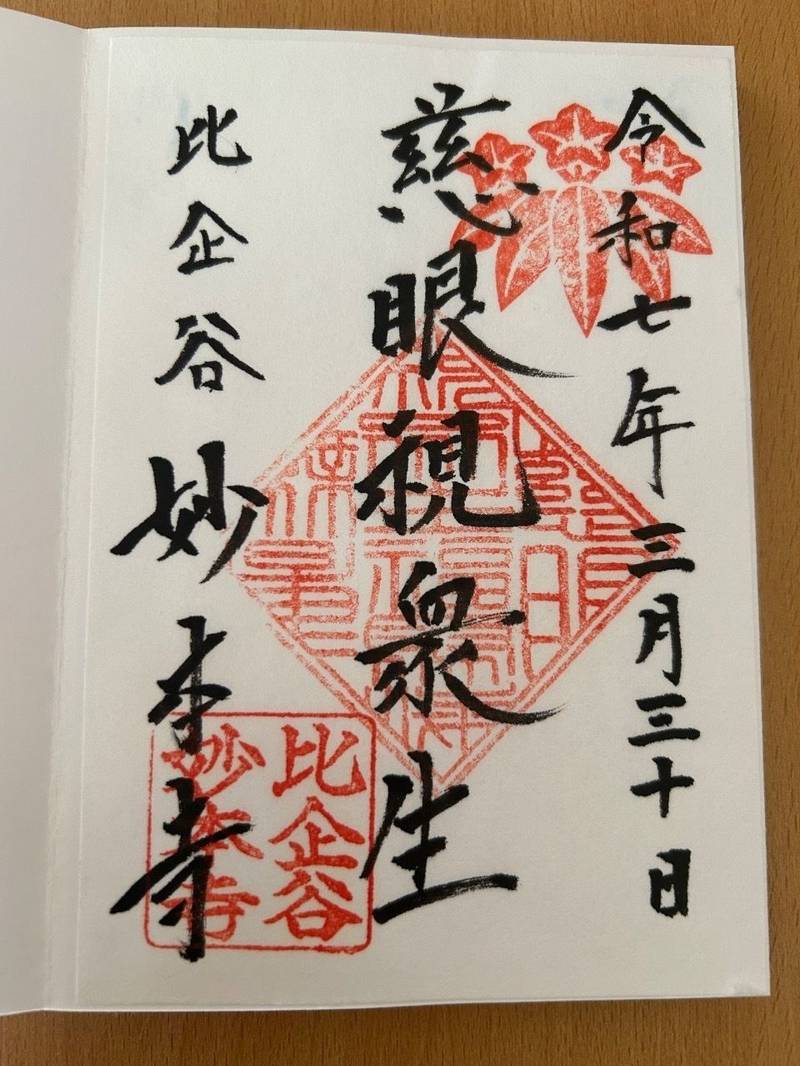 令和七年三月三十日
慈眼視衆生
比企谷妙本寺
比企谷
妙本寺